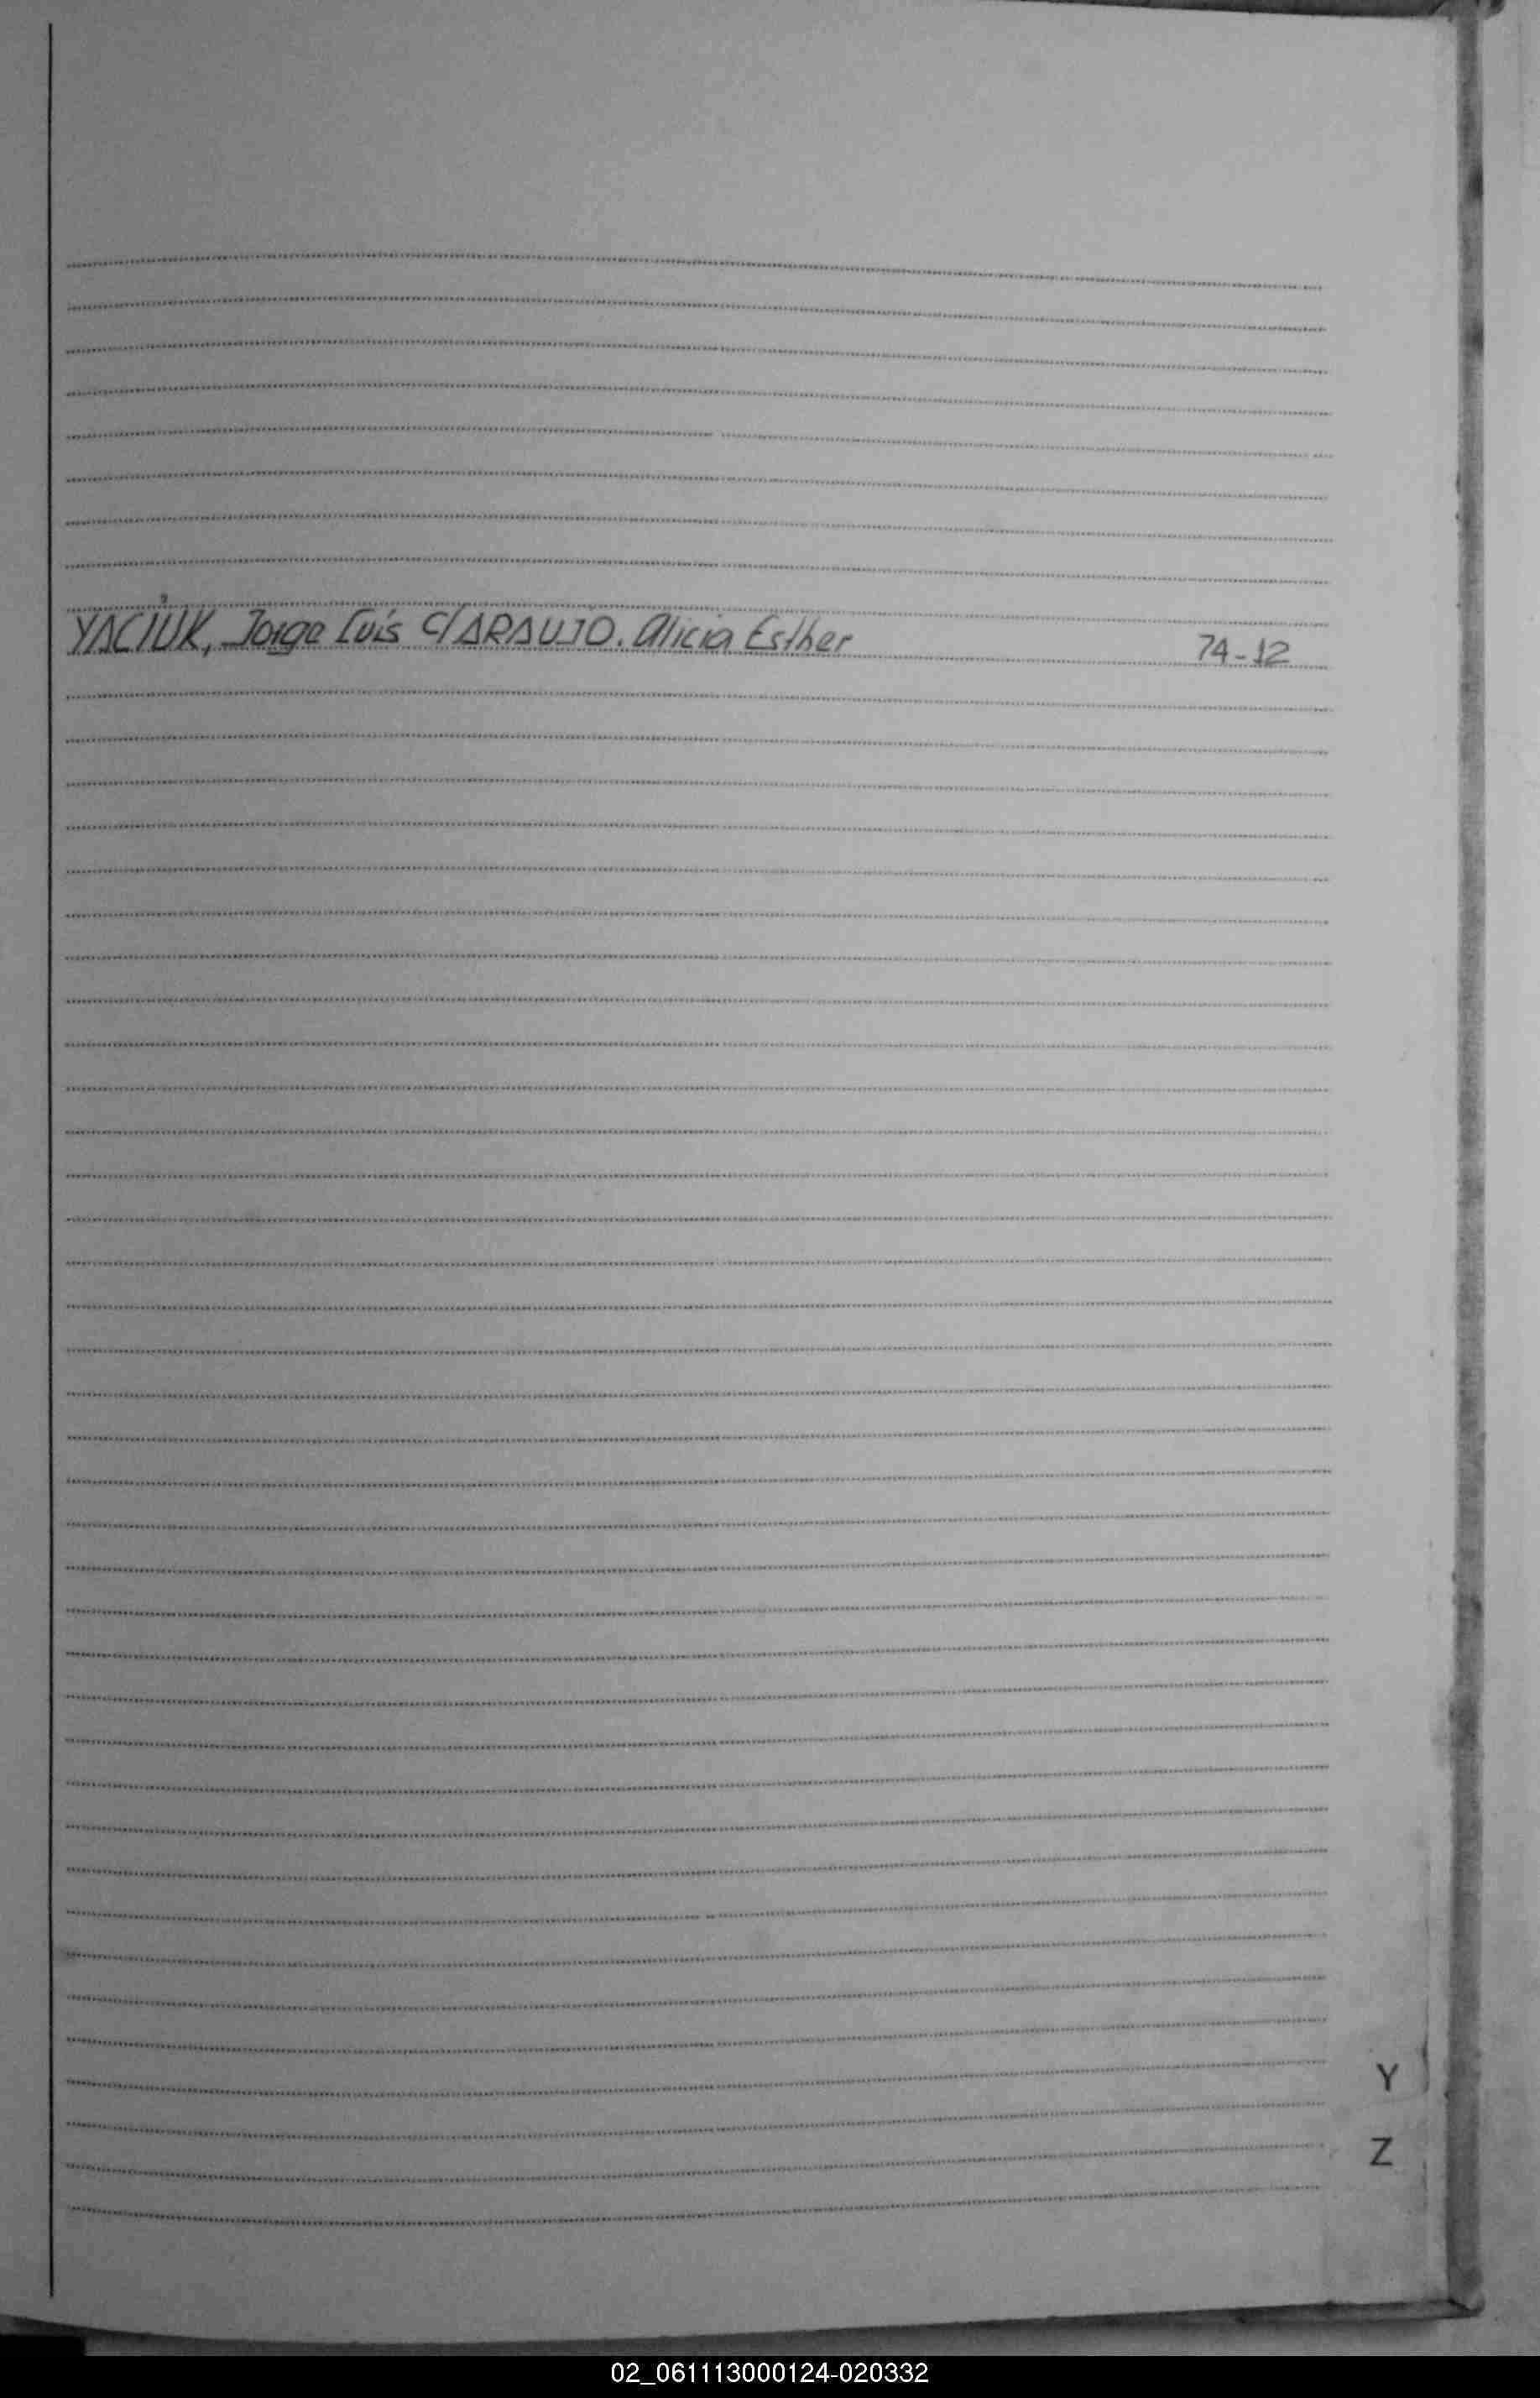 YACIUK, Jorge Luis C/ARAUJO. Alicia Esther 74-12
Y
Z
02_061113000124-020332